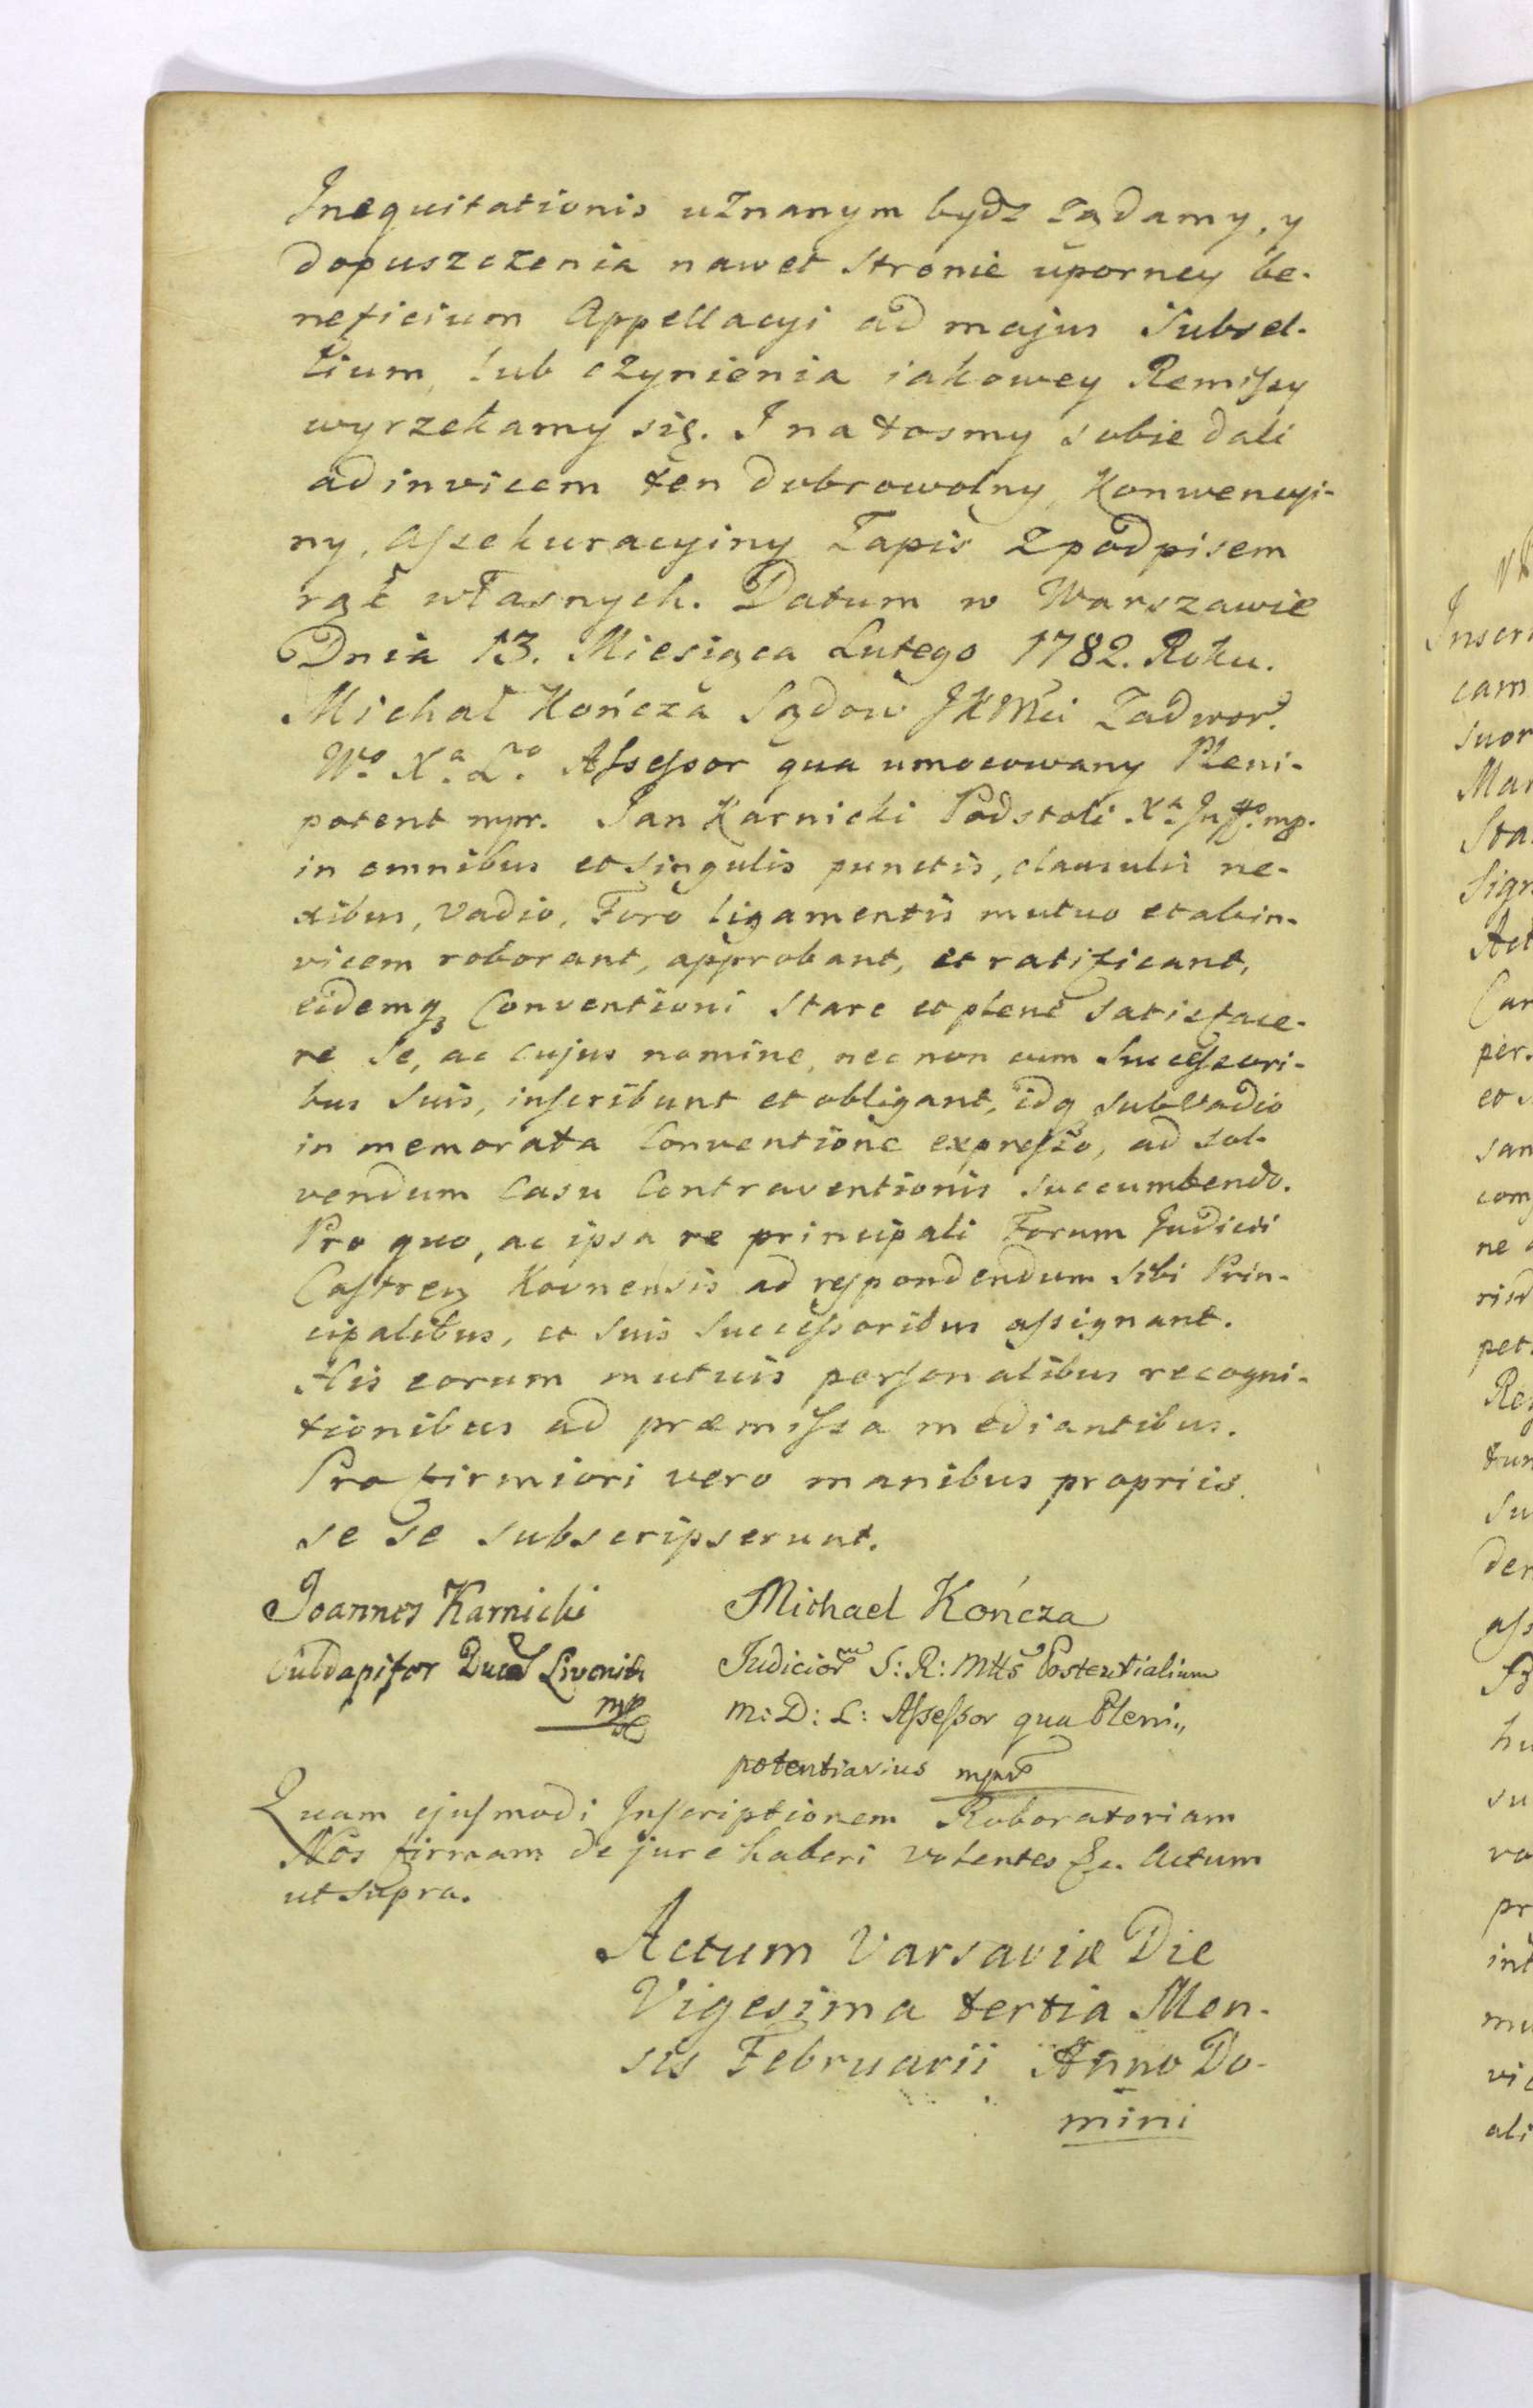 Inequitationis uznanym bydz żądamy, y
dopuszczenia nawet stronie uporney be-
neficium Appellacyi ad majus Subsel-
lium, lub czynienia iakowey Remissy
wyrzekamy się. I na tosmy sobie dali
ad invicem ten dobrowolny, Konwencyi-
ny, Assekuracyiny Zapis z podpisem
rąk własnych. Datum w Warszawie
Dnia 13. Miesiąca Lutego 1782. Roku.
Michał Kończa Sądow JKMci Zadwor.
Wo. Xa. Lo. Assessor qua umocowany Pleni-
potent mpr. Jan Karnicki Podstoli Xa. Inff. mp.
in omnibus et singulis punctis, clausulis ne-
xibus, vadio, Foro ligamentis mutuo et abin-
vicem roborant, approbant, et ratificant,
eidemq3 Conventioni stare et plene satisface-
re se, ac cujus nomine, nec non cum Successori-
bus suis, inscribunt et obligant, idq3 sub vadio
in memorata Conventione expresso, ad sol-
vendum casu Contraventionis succumbendo.
Pro quo, ac ipsa re principali Forum Judicii
Castren Kovnensis ad respondendum sibi Prin-
cipalibus, et suis Successoribus assignant.
His eorum mutuis personalibus recogni-
tionibus ad præmissa mediantibus.
Pro firmiori vero manibus propriis
se se subscripserunt.
Joannes Karnicki Michael Kończa
Subdapifer Ducat Livoniæ Judiciorum S: R: Mttis Postcurialium
mp M: D: L: Assessor qua Pleni„
potentiarius mpr
Quam ejusmodi Inscriptionem Roboratoriam
Nos firmam de jure haberi volentes &c. Actum
ut supra.
Actum Varsaviæ Die
Vigesima tertia Men-
sis Februarii Anno Do-
mini
Inscri
cam
suor
Mar
Sta
Sign
Act
Car
per
et
san
com
ne
risd
pet
Re
tun
su
der
ass
hu
su
vo
pr
int
mu
vic
ali